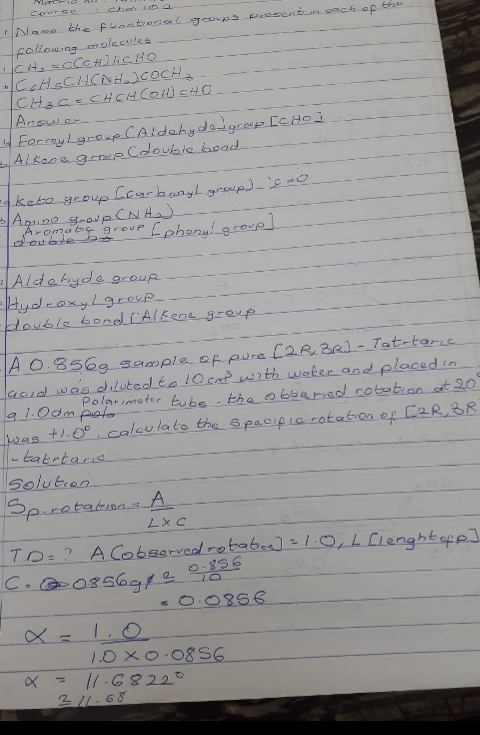 Course Chm 102
Name the functional groups present in each of the
following molecules
CH2 = C(CH)iiCHO
C6H5CH(NH2)COCH3
CH3C = CHCH(OH)CHO
Answer
Formyl group (Aldehyde) group [CHO]
Alkene group (double bond
Keto group [Carbonyl group) C=O
Amino group (NH2)
Aromatic group [phenyl group]
double bo
Aldehyde group
Hydroxyl group
double bond [Alkene group
A 0.856g sample of pure [2R, 3R] - Tatrtaric
acid was diluted to 10cm3 with water and placed in
a 1.0dm polo Polarimeter tube. the observed rotation at 20°
was +1.0°, calculate the spacific rotation of [2R, 3R
-tatrtaric
Solution
Sp. rotation = A
L x C
TD = ? A (observed rotation] = 1.0, L [lenght of p]
C = 0.0856g/ = 0.856
10
= 0.0856
α = 1.0
1.0 x 0.0856
α = 11.6822°
≃ 11.68